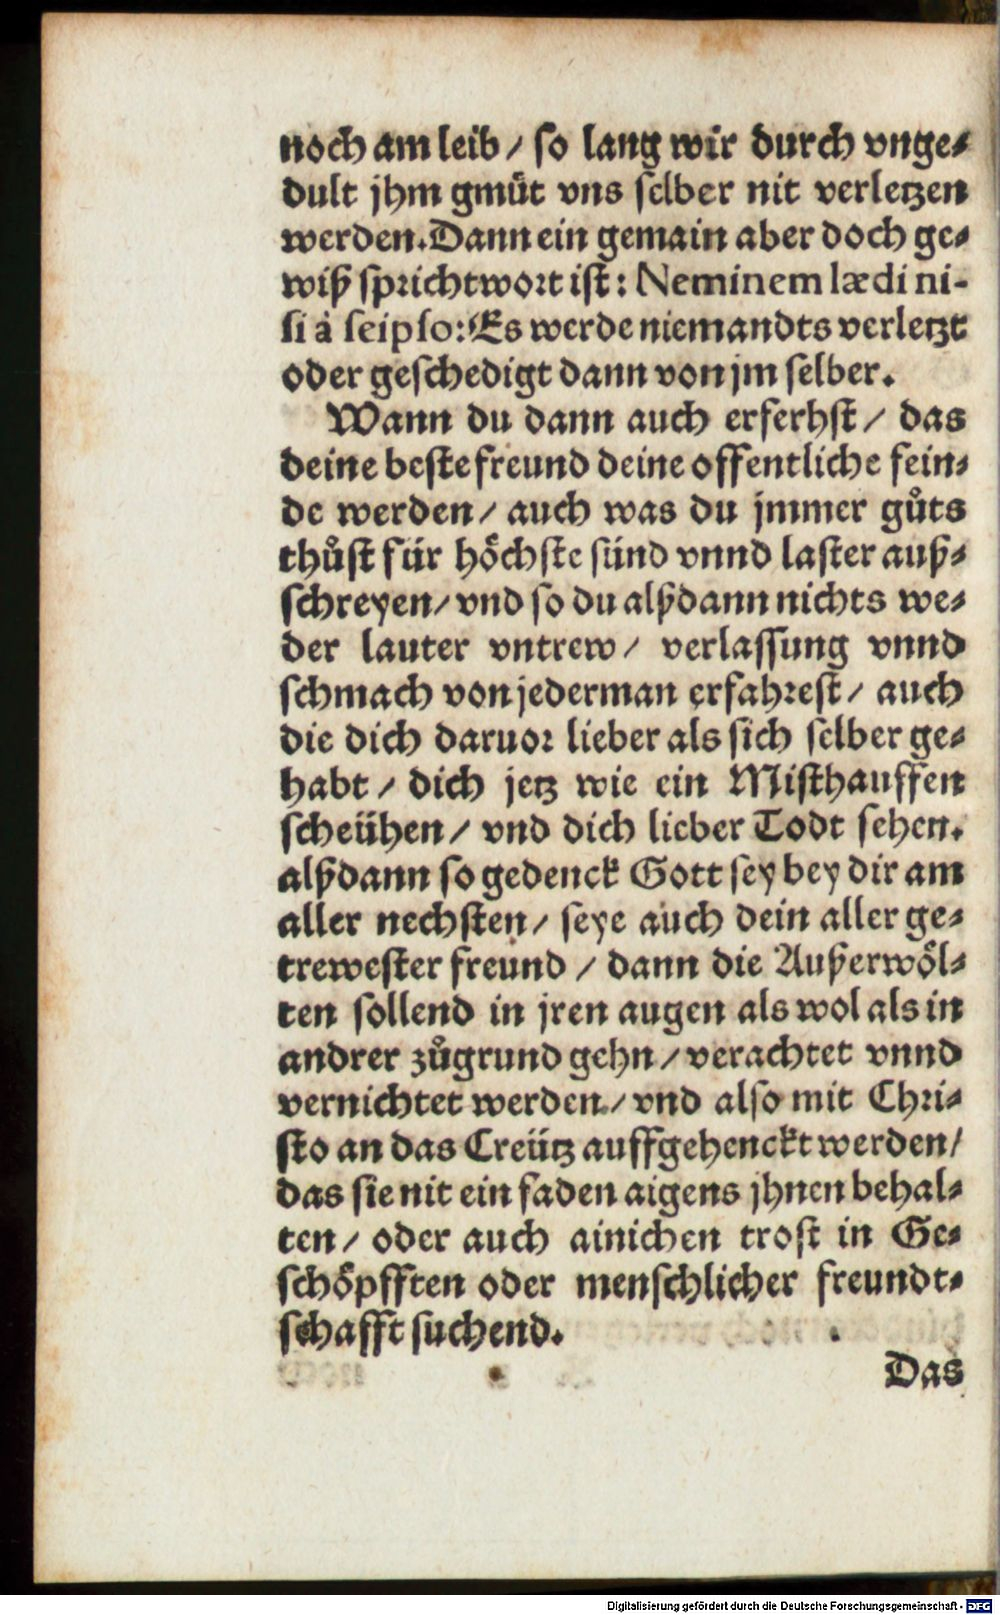 noch am leib / so lang wir durch vnge⸗
dult jhm gmüt vns selber nit verletzen
werden. Dann ein gemain aber doch ge⸗
wiß sprichtwort ist: Neminem lædi ni-
si à seipso: Es werde niemandts verletzt
oder geschedigt dann von jm selber.
Wann du dann auch erferhst / das
deine beste freund deine offentliche fein⸗
de werden / auch was du jmmer gůts
thůst für höchste sünd vnnd laster auß⸗
schreyen / vnd so du alßdann nichts we⸗
der lauter vntrew / verlassung vnnd
schmach von jederman erfahrest / auch
die dich daruor lieber als sich selber ge⸗
habt / dich jetz wie ein Misthauffen
scheühen / vnd dich lieber Todt sehen.
alßdann so gedenck Gott sey bey dir am
aller nechsten / seye auch dein aller ge⸗
trewester freund / dann die Außerwöl⸗
ten sollend in jren augen als wol als in
andrer zůgrund gehn / verachtet vnnd
vernichtet werden / vnd also mit Chri⸗
sto an das Creütz auffgehenckt werden /
das sie nit ein faden aigens jhnen behal⸗
ten / oder auch ainichen trost in Ge⸗
schöpfften oder menschlicher freundt⸗
schafft suchend.
Das
Digitalisierung gefördert durch die Deutsche Forschungsgemeinschaft - DFG